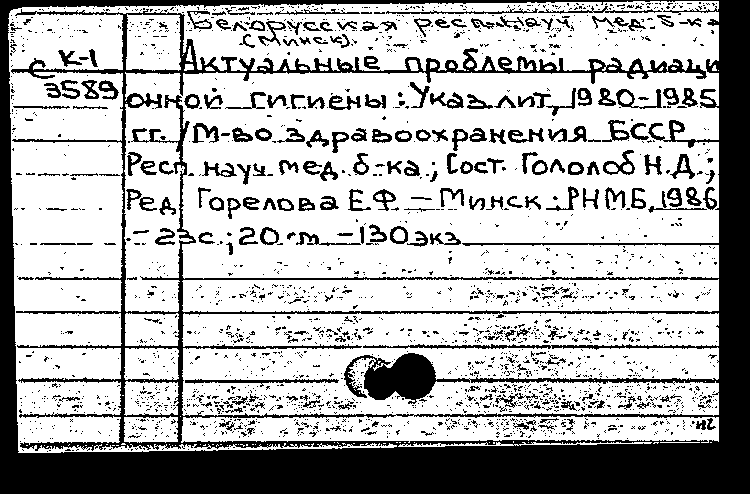 Белорусская респ. науч. мед. б-ка
(Минск).
К-1
С
3589
Актуальные проблемы радиаци
онной гигиены: Указ. лит., 1980-1985
гг. / М-во здравоохранения БССР,
Респ. науч. мед. б-ка; Сост. Гололоб Н.Д.;
Ред. Горелова Е.Ф. — Минск: РНМБ, 1986
. — 23с.; 20 см — 130 экз